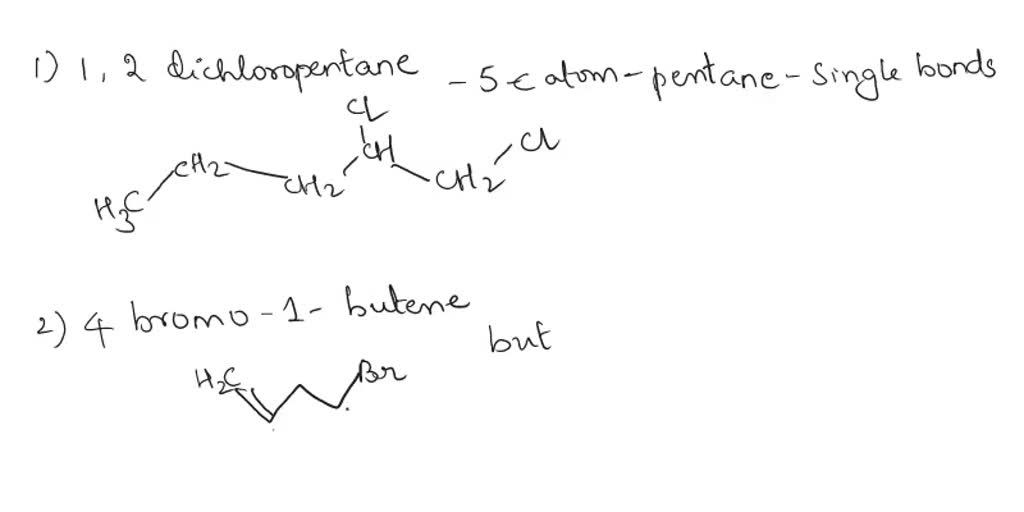 1) 1, 2 dichloropentane - 5 C atom - pentane - single bonds
Cl
CH
Cl
CH2
CH2
CH2
H3C
2) 4 bromo - 1 - butene
but
H2C
Br